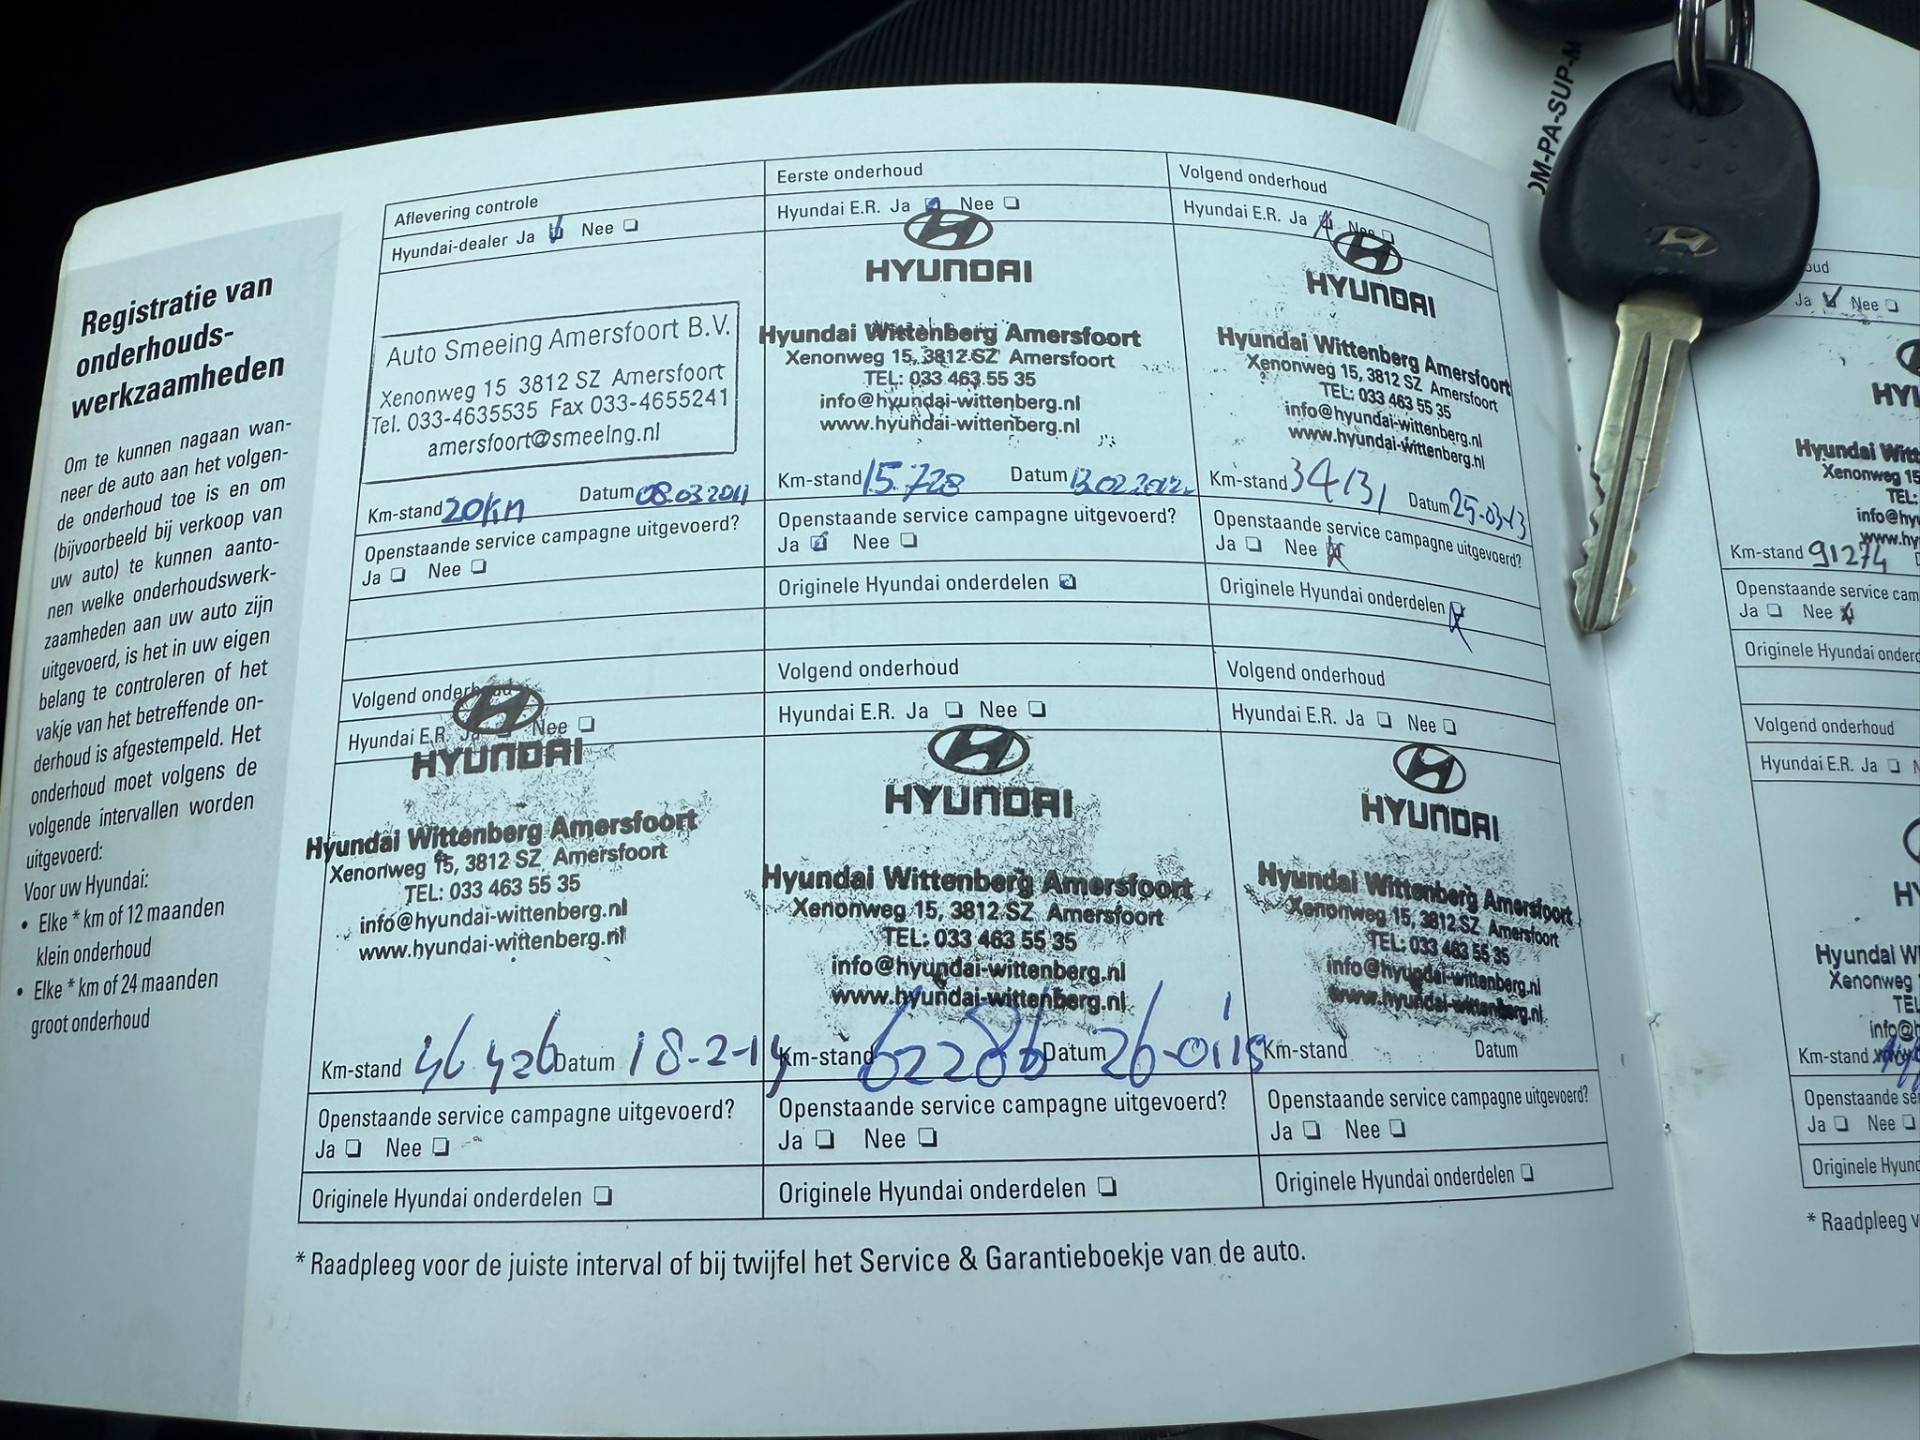 Registratie van
onderhouds-
werkzaamheden
Om te kunnen nagaan wan-
neer de auto aan het volgen-
de onderhoud toe is en om
(bijvoorbeeld bij verkoop van
uw auto) te kunnen aanto-
nen welke onderhoudswerk-
zaamheden aan uw auto zijn
uitgevoerd, is het in uw eigen
belang te controleren of het
vakje van het betreffende on-
derhoud is afgestempeld. Het
onderhoud moet volgens de
volgende intervallen worden
uitgevoerd:
Voor uw Hyundai:
• Elke * km of 12 maanden
klein onderhoud
• Elke * km of 24 maanden
groot onderhoud
Aflevering controle
Hyundai-dealer Ja Nee
Auto Smeeing Amersfoort B.V.
Xenonweg 15 3812 SZ Amersfoort
Tel. 033-4635535 Fax 033-4655241
amersfoort@smeeing.nl
Km-stand 20km Datum 08.03.2011
Openstaande service campagne uitgevoerd?
Ja Nee
Eerste onderhoud
Hyundai E.R. Ja Nee
HYUNDAI
Hyundai Wittenberg Amersfoort
Xenonweg 15, 3812 SZ Amersfoort
TEL: 033 463 55 35
info@hyundai-wittenberg.nl
www.hyundai-wittenberg.nl
Km-stand 15.728 Datum 13.02.2012
Openstaande service campagne uitgevoerd?
Ja Nee
Originele Hyundai onderdelen
Volgend onderhoud
Hyundai E.R. Ja Nee
HYUNDAI
Hyundai Wittenberg Amersfoort
Xenonweg 15, 3812 SZ Amersfoort
TEL: 033 463 55 35
info@hyundai-wittenberg.nl
www.hyundai-wittenberg.nl
Km-stand 34131 Datum 25-03-13
Openstaande service campagne uitgevoerd?
Ja Nee
Originele Hyundai onderdelen
Volgend onderhoud
Hyundai E.R. Ja Nee
HYUNDAI
Hyundai Wittenberg Amersfoort
Xenonweg 15, 3812 SZ Amersfoort
TEL: 033 463 55 35
info@hyundai-wittenberg.nl
www.hyundai-wittenberg.nl
Km-stand 46.426 Datum 18-2-14
Openstaande service campagne uitgevoerd?
Ja Nee
Originele Hyundai onderdelen
Volgend onderhoud
Hyundai E.R. Ja Nee
HYUNDAI
Hyundai Wittenberg Amersfoort
Xenonweg 15, 3812 SZ Amersfoort
TEL: 033 463 55 35
info@hyundai-wittenberg.nl
www.hyundai-wittenberg.nl
Km-stand 62286 Datum
Openstaande service campagne uitgevoerd?
Ja Nee
Originele Hyundai onderdelen
Volgend onderhoud
Hyundai E.R. Ja Nee
HYUNDAI
Hyundai Wittenberg Amersfoort
Xenonweg 15, 3812 SZ Amersfoort
TEL: 033 463 55 35
info@hyundai-wittenberg.nl
www.hyundai-wittenberg.nl
Km-stand Datum
Openstaande service campagne uitgevoerd?
Ja Nee
Originele Hyundai onderdelen
* Raadpleeg voor de juiste interval of bij twijfel het Service & Garantieboekje van de auto.
OM-PA-SUP-M
oud
Ja Nee
HYU
Hyundai Witt
Xenonweg 15
TEL:
info@hy
www.hy
Km-stand 91274
Openstaande service cam
Ja Nee
Originele Hyundai onderd
Volgend onderhoud
Hyundai E.R. Ja N
HY
Hyundai W
Xenonweg
TEL
info@h
Km-stand
Openstaande se
Ja Nee
Originele Hyun
* Raadpleeg v